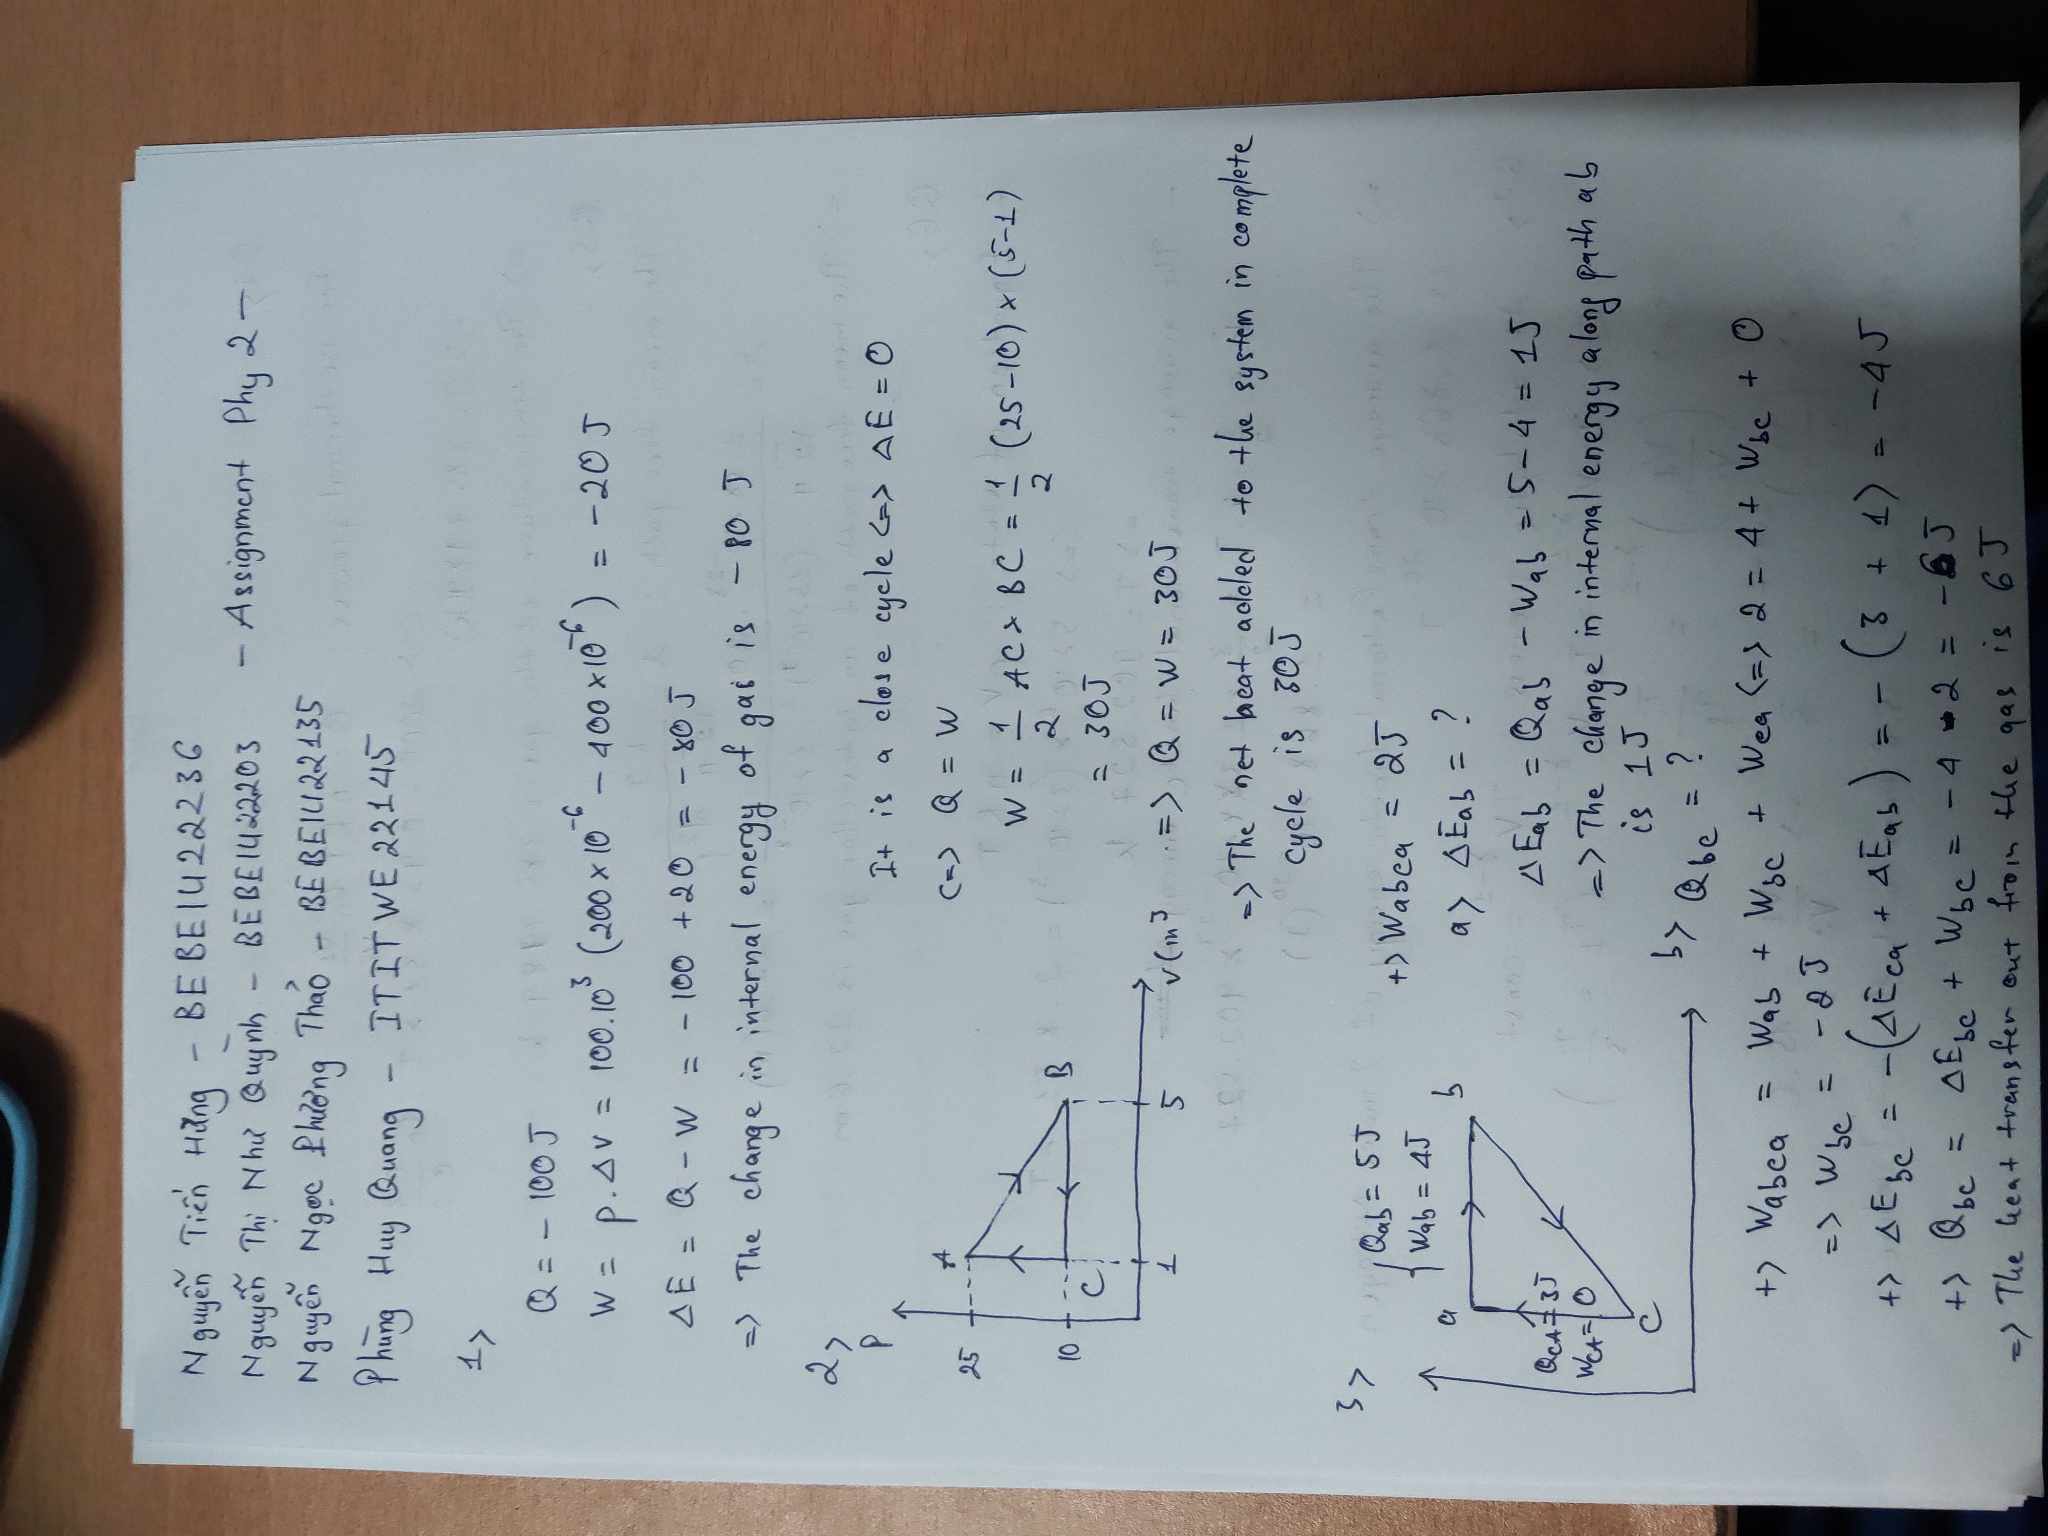 Nguyễn Tiến Hưng - BEBEIU22236
Nguyễn Thị Như Quỳnh - BEBEIU22203
- Assignment Phy 2 -
Nguyễn Ngọc Phương Thảo - BEBEIU22135
Phùng Huy Quang - ITITWE22145
1>
Q = - 100J
W = p.ΔV = 100.10³ (200 x 10⁻⁶ - 400 x 10⁻⁶) = -20 J
ΔE = Q - W = - 100 + 20 = - 80 J
=> The change in internal energy of gas is - 80 J
2>
P
25
A
10
C
B
1
5
V(m³
It is a close cycle <=> ΔE = 0
<=> Q = W
W = 1/2 AC x BC = 1/2 (25-10) x (5-1)
= 30J
=> Q = W = 30J
=> The net heat added to the system in complete
cycle is 30J
3>
Qab = 5J
Wab = 4J
a
b
QCA = 3J
WCA = 0
C
+> Wabca = 2J
a> ΔEab = ?
ΔEab = Qab - Wab = 5 - 4 = 1J
=> The change in internal energy along path ab
is 1J
b> Qbc = ?
+> Wabca = Wab + Wbc + Wca <=> 2 = 4 + Wbc + 0
=> Wbc = -2J
+> ΔEbc = -(ΔEca + ΔEab) = - (3 + 1) = -4J
+> Qbc = ΔEbc + Wbc = - 4 - 2 = -6J
=> The heat transfer out from the gas is 6J